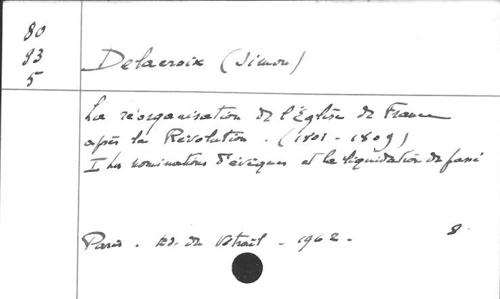 80
93
5
Delacroix (Simon)
La réorganisation de l'Église de France
après la Révolution. (1801-1809)
I Les nominations d'évêques et la liquidation du passé
Paris. Ed. du Vitrail - 1962 -
8